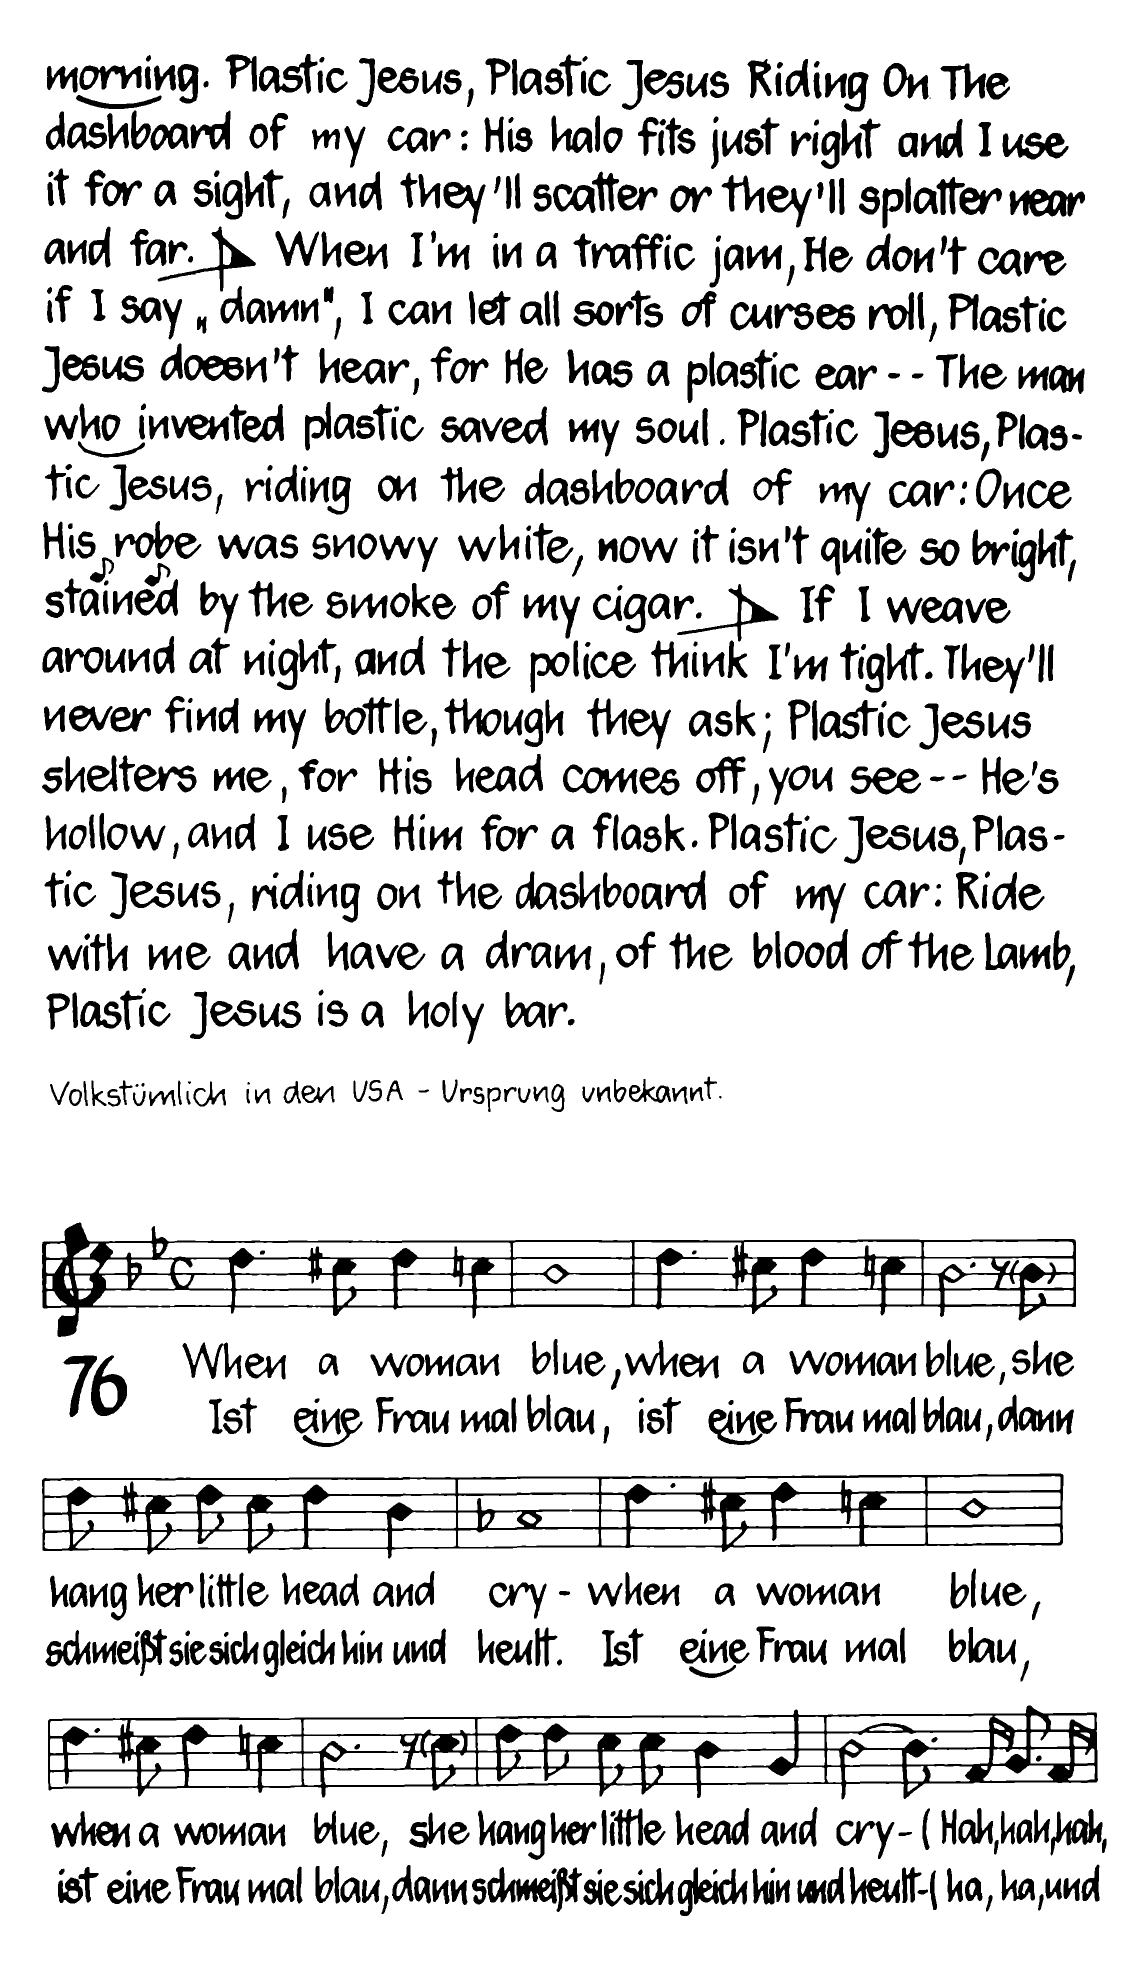 morning. Plastic Jesus, Plastic Jesus Riding On The
dashboard of my car: His halo fits just right and I use
it for a sight, and they'll scatter or they'll splatter near
and far. When I'm in a traffic jam, He don't care
if I say „damn", I can let all sorts of curses roll, Plastic
Jesus doesn't hear, for He has a plastic ear -- The man
who invented plastic saved my soul. Plastic Jesus, Plas-
tic Jesus, riding on the dashboard of my car: Once
His robe was snowy white, now it isn't quite so bright,
stained by the smoke of my cigar. If I weave
around at night, and the police think I'm tight. They'll
never find my bottle, though they ask; Plastic Jesus
shelters me, for His head comes off, you see -- He's
hollow, and I use Him for a flask. Plastic Jesus, Plas-
tic Jesus, riding on the dashboard of my car: Ride
with me and have a dram, of the blood of the Lamb,
Plastic Jesus is a holy bar.
Volkstümlich in den USA - Ursprung unbekannt.
76
When a woman blue, when a woman blue, she
Ist eine Frau mal blau, ist eine Frau mal blau, dann
hang her little head and cry - when a woman blue,
schmeißt sie sich gleich hin und heult. Ist eine Frau mal blau,
when a woman blue, she hang her little head and cry - ( Hah, hah, hah,
ist eine Frau mal blau, dann schmeißt sie sich gleich hin und heult - ( ha, ha, und